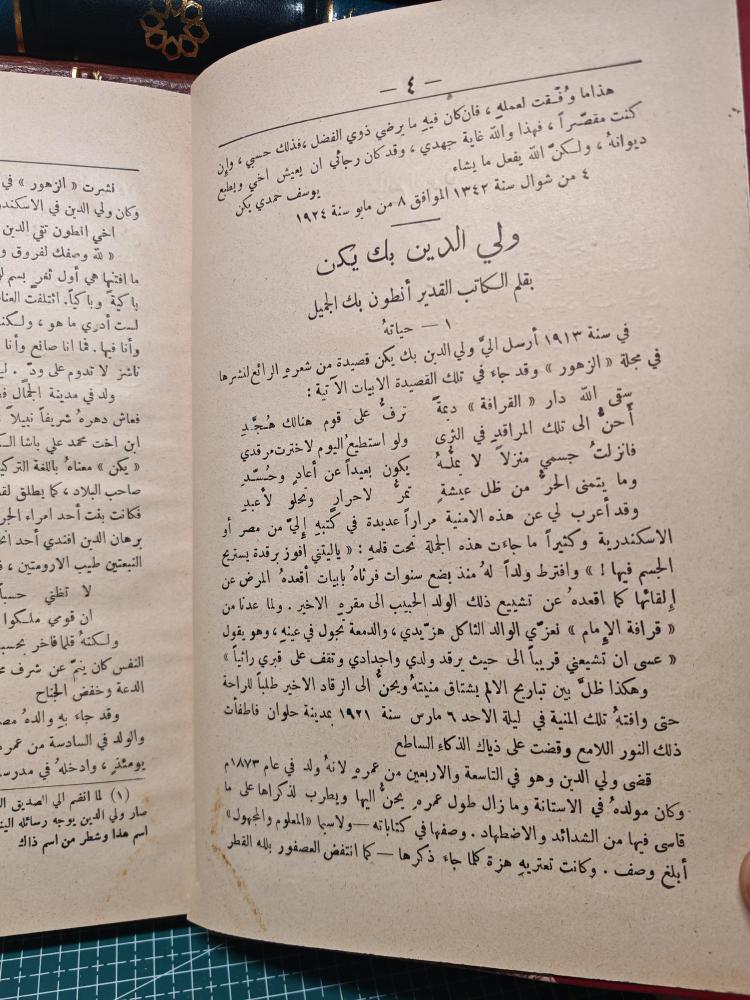 — ٤ —
هذا ما وُفّقت لعملهِ ، فان كان فيهِ ما يرضي ذوي الفضل ، فذلك حسبي ، وإن
كنت مقصّراً ، فهذا والله غاية جهدي ، وقد كان رجائي ان يعيش اخي ويطبع
ديوانهُ ، ولكنّ الله يفعل ما يشاء
يوسف حمدي يكن
٤ من شوال سنة ١٣٤٢ الموافق ٨ من مايو سنة ١٩٢٤
ولي الدين بك يكن
بقلم الكاتب القدير أنطون بك الجميل
١ — حياتهُ
في سنة ١٩١٣ أرسل اليَّ ولي الدين بك يكن قصيدة من شعرهِ الرائع لنشرها
في مجلة « الزهور » وقد جاء في تلك القصيدة الابيات الآتية :
سقى الله دار « القرافة » ديمةً ترفُّ على قوم هنالك هُجَّدِ
أَحنُّ الى تلك المراقدِ في الثرى ولو استطيعُ اليوم لاخترت مرقدي
فانزلتُ جسمي منزلاً لا يملُّهُ يكون بعيداً عن أعادٍ وحُسّدِ
وما يتمنى الحرُّ من ظل عيشةٍ تمرُّ لاحرارٍ وتحلو لأعبدِ
وقد أعرب لي عن هذه الامنية مراراً عديدة في كتبهِ إليَّ من مصر أو
الاسكندرية وكثيراً ما جاءت هذه الجملة تحت قلمهِ : « ياليتني افوز برقدة يستريح
الجسم فيها ! » وافترط ولداً لهُ منذ بضع سنوات فرثاهُ بابيات أقعدهُ المرض عن
إلقائها كما اقعدهُ عن تشييع ذلك الولد الحبيب الى مقرهِ الاخير . ولما عدنا من
« قرافة الإمام » نعزّي الوالد الثاكل هزّ يدي ، والدمعة تجول في عينهِ ، وهو يقول
« عسى ان تشيعني قريباً الى حيث يرقد ولدي واجدادي وتقف على قبري راثياً »
وهكذا ظلَّ بين تباريح الالم يشتاق منيتهُ ويحنُّ الى الرقاد الاخير طلباً للراحة
حتى وافتهُ تلك المنية في ليلة الاحد ٦ مارس سنة ١٩٢١ بمدينة حلوان فاطفأت
ذلك النور اللامع وقضت على ذياك الذكاء الساطع
قضى ولي الدين وهو في التاسعة والاربعين من عمرهِ لانهُ ولد في عام ١٨٧٣م
وكان مولدهُ في الاستانة وما زال طول عمرهِ يحنُّ اليها ويطرب لذكراها على ما
قاسى فيها من الشدائد والاضطهاد . وصفها في كتاباته — ولاسيما «المعلوم والمجهول»
أبلغ وصف . وكانت تعتريهِ هزة كلما جاء ذكرها — كما انتفض العصفور بلله القطر
نشرت « الزهور » في
وكان ولي الدين في الاسكندر
اخي انطون تقي الدين
« لله وصفك لفروق و
ما افتنها هي أول ثغر بسم
باكيةً وباكياً. ائتلفت العناد
لست أدري ما هو ، ولكنه
وأنا فيها . فما انا صانع وأنا
ناشز لا تدوم على ودّ .
ولد في مدينة الجمال
فعاش دهرهُ شريفاً نبيلاً
ابن اخت محمد علي باشا
« يكن » معناهُ باللغة التركية
صاحب البلاد ، كما يطلق
فكانت بنت أحد امراء
برهان الدين افندي أحد
النبعتين طيب الارومتين ،
لا تظني حسباً
ان قومي ملكوا
ولكنهُ قلما فاخر بحسب
النفس كان ينمّ عن شرف
الدعة وخفض الجناح
وقد جاء بهِ والدهُ مصر
والولد في السادسة من عمره
يومئذٍ ، وادخلهُ في مدرسة
(١) لما انضم الي الصديق
صار ولي الدين يوجه رسائله
اسم هذا وشطر من اسم ذاك